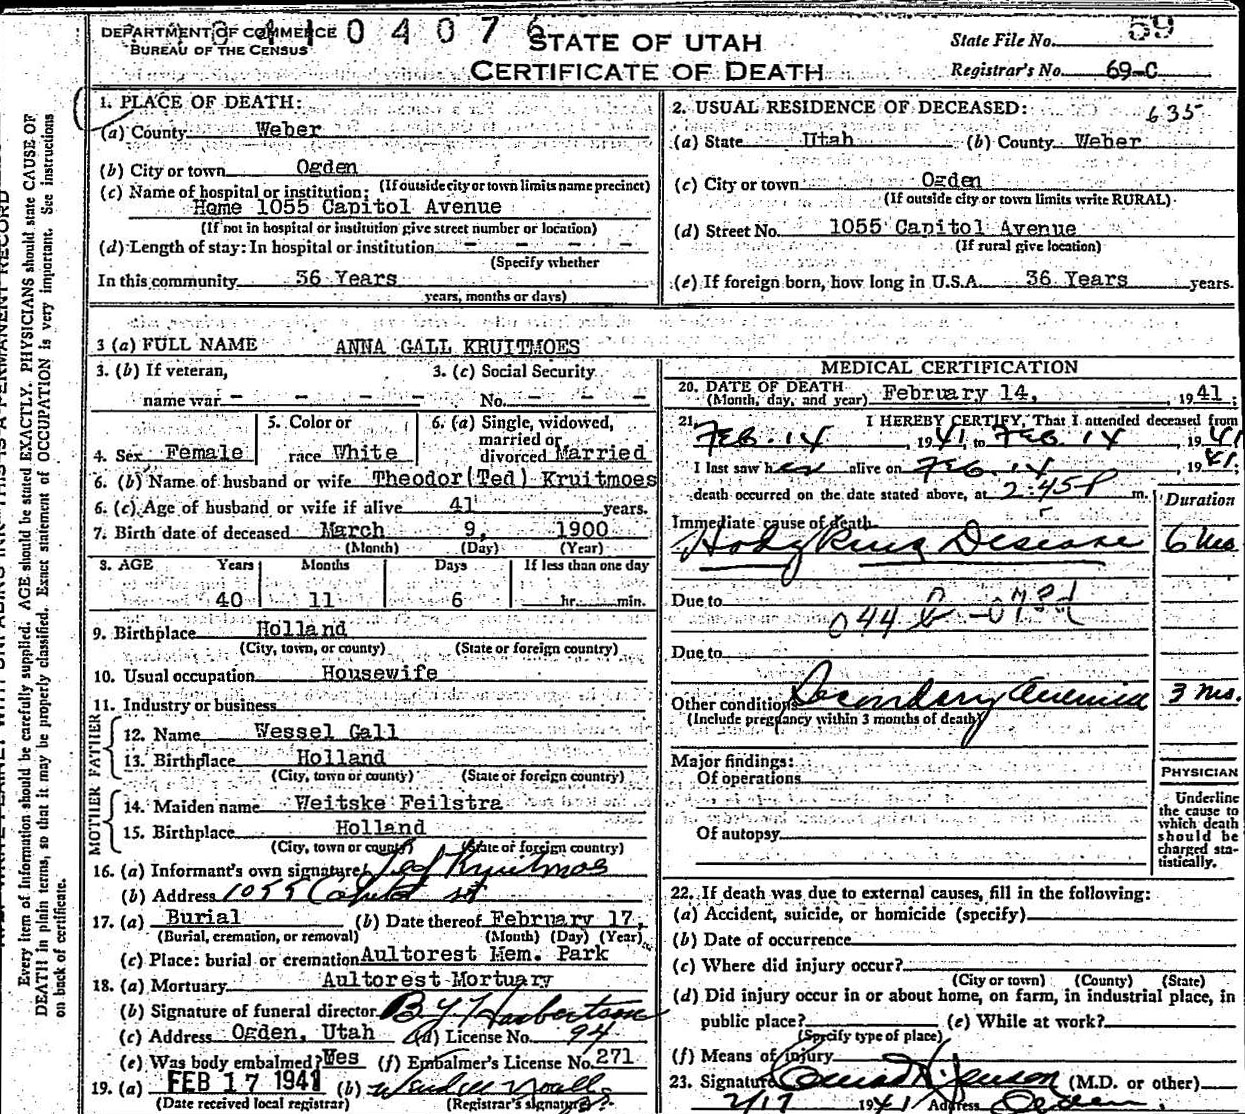 DEPARTMENT OF COMMERCE
BUREAU OF THE CENSUS
04076
STATE OF UTAH
CERTIFICATE OF DEATH
State File No. 59
Registrar's No. 69-C
1. PLACE OF DEATH:
(a) County Weber
(b) City or town Ogden
(If outside city or town limits name precinct)
(c) Name of hospital or institution:
Home 1055 Capitol Avenue
(If not in hospital or institution give street number or location)
(d) Length of stay: In hospital or institution - - - -
(Specify whether
In this community 36 Years
years, months or days)
2. USUAL RESIDENCE OF DECEASED: 635
(a) State Utah (b) County Weber
(c) City or town Ogden
(If outside city or town limits write RURAL)
(d) Street No. 1055 Capitol Avenue
(If rural give location)
(e) If foreign born, how long in U.S.A. 36 Years years.
3 (a) FULL NAME ANNA GALL KRUITMOES
3. (b) If veteran,
name war - - - -
3. (c) Social Security
No. - - -
4. Sex Female
5. Color or
race White
6. (a) Single, widowed,
married or
divorced Married
6. (b) Name of husband or wife Theodor(Ted) Kruitmoes
6. (c) Age of husband or wife if alive 41 years.
7. Birth date of deceased March 9, 1900
(Month) (Day) (Year)
8. AGE Years Months Days If less than one day
40 11 6 hr. min.
9. Birthplace Holland
(City, town, or county) (State or foreign country)
10. Usual occupation Housewife
11. Industry or business
FATHER
12. Name Wessel Gall
13. Birthplace Holland
(City, town or county) (State or foreign country)
MOTHER
14. Maiden name Weitske Feilstra
15. Birthplace Holland
(City, town or county) (State or foreign country)
16. (a) Informant's own signature Ted Kruitmoes
(b) Address 1055 Capitol st
17. (a) Burial (b) Date thereof February 17,
(Burial, cremation, or removal) (Month) (Day) (Year)
(c) Place: burial or cremation Aultorest Mem. Park
18. (a) Mortuary Aultorest Mortuary
(b) Signature of funeral director
(c) Address Ogden, Utah (d) License No. 94
(e) Was body embalmed? Yes (f) Embalmer's License No. 271
19. (a) FEB 17 1941 (b)
(Date received local registrar) (Registrar's signature)
MEDICAL CERTIFICATION
20. DATE OF DEATH
(Month, day, and year) February 14, 1941;
21. I HEREBY CERTIFY, That I attended deceased from
Feb. 14, 1941 to Feb. 14, 1941
I last saw her alive on Feb. 14, 1941;
death occurred on the date stated above, at 2:45 P m.
Duration
Immediate cause of death
Hodgkins Disease 6 mo
Due to
044
Due to
Other conditions Secondary Anemia 3 mo.
(Include pregnancy within 3 months of death)
Major findings:
Of operations
Of autopsy
PHYSICIAN
Underline
the cause to
which death
should be
charged sta-
tistically.
22. If death was due to external causes, fill in the following:
(a) Accident, suicide, or homicide (specify)
(b) Date of occurrence
(c) Where did injury occur?
(City or town) (County) (State)
(d) Did injury occur in or about home, on farm, in industrial place, in
public place? (e) While at work?
(Specify type of place)
(f) Means of injury
23. Signature (M.D. or other)
2/17 1941 Address Ogden
Every item of information should be carefully supplied. AGE should be stated EXACTLY. PHYSICIANS should state CAUSE OF
DEATH in plain terms, so that it may be properly classified. Exact statement of OCCUPATION is very important. See instructions
on back of certificate.